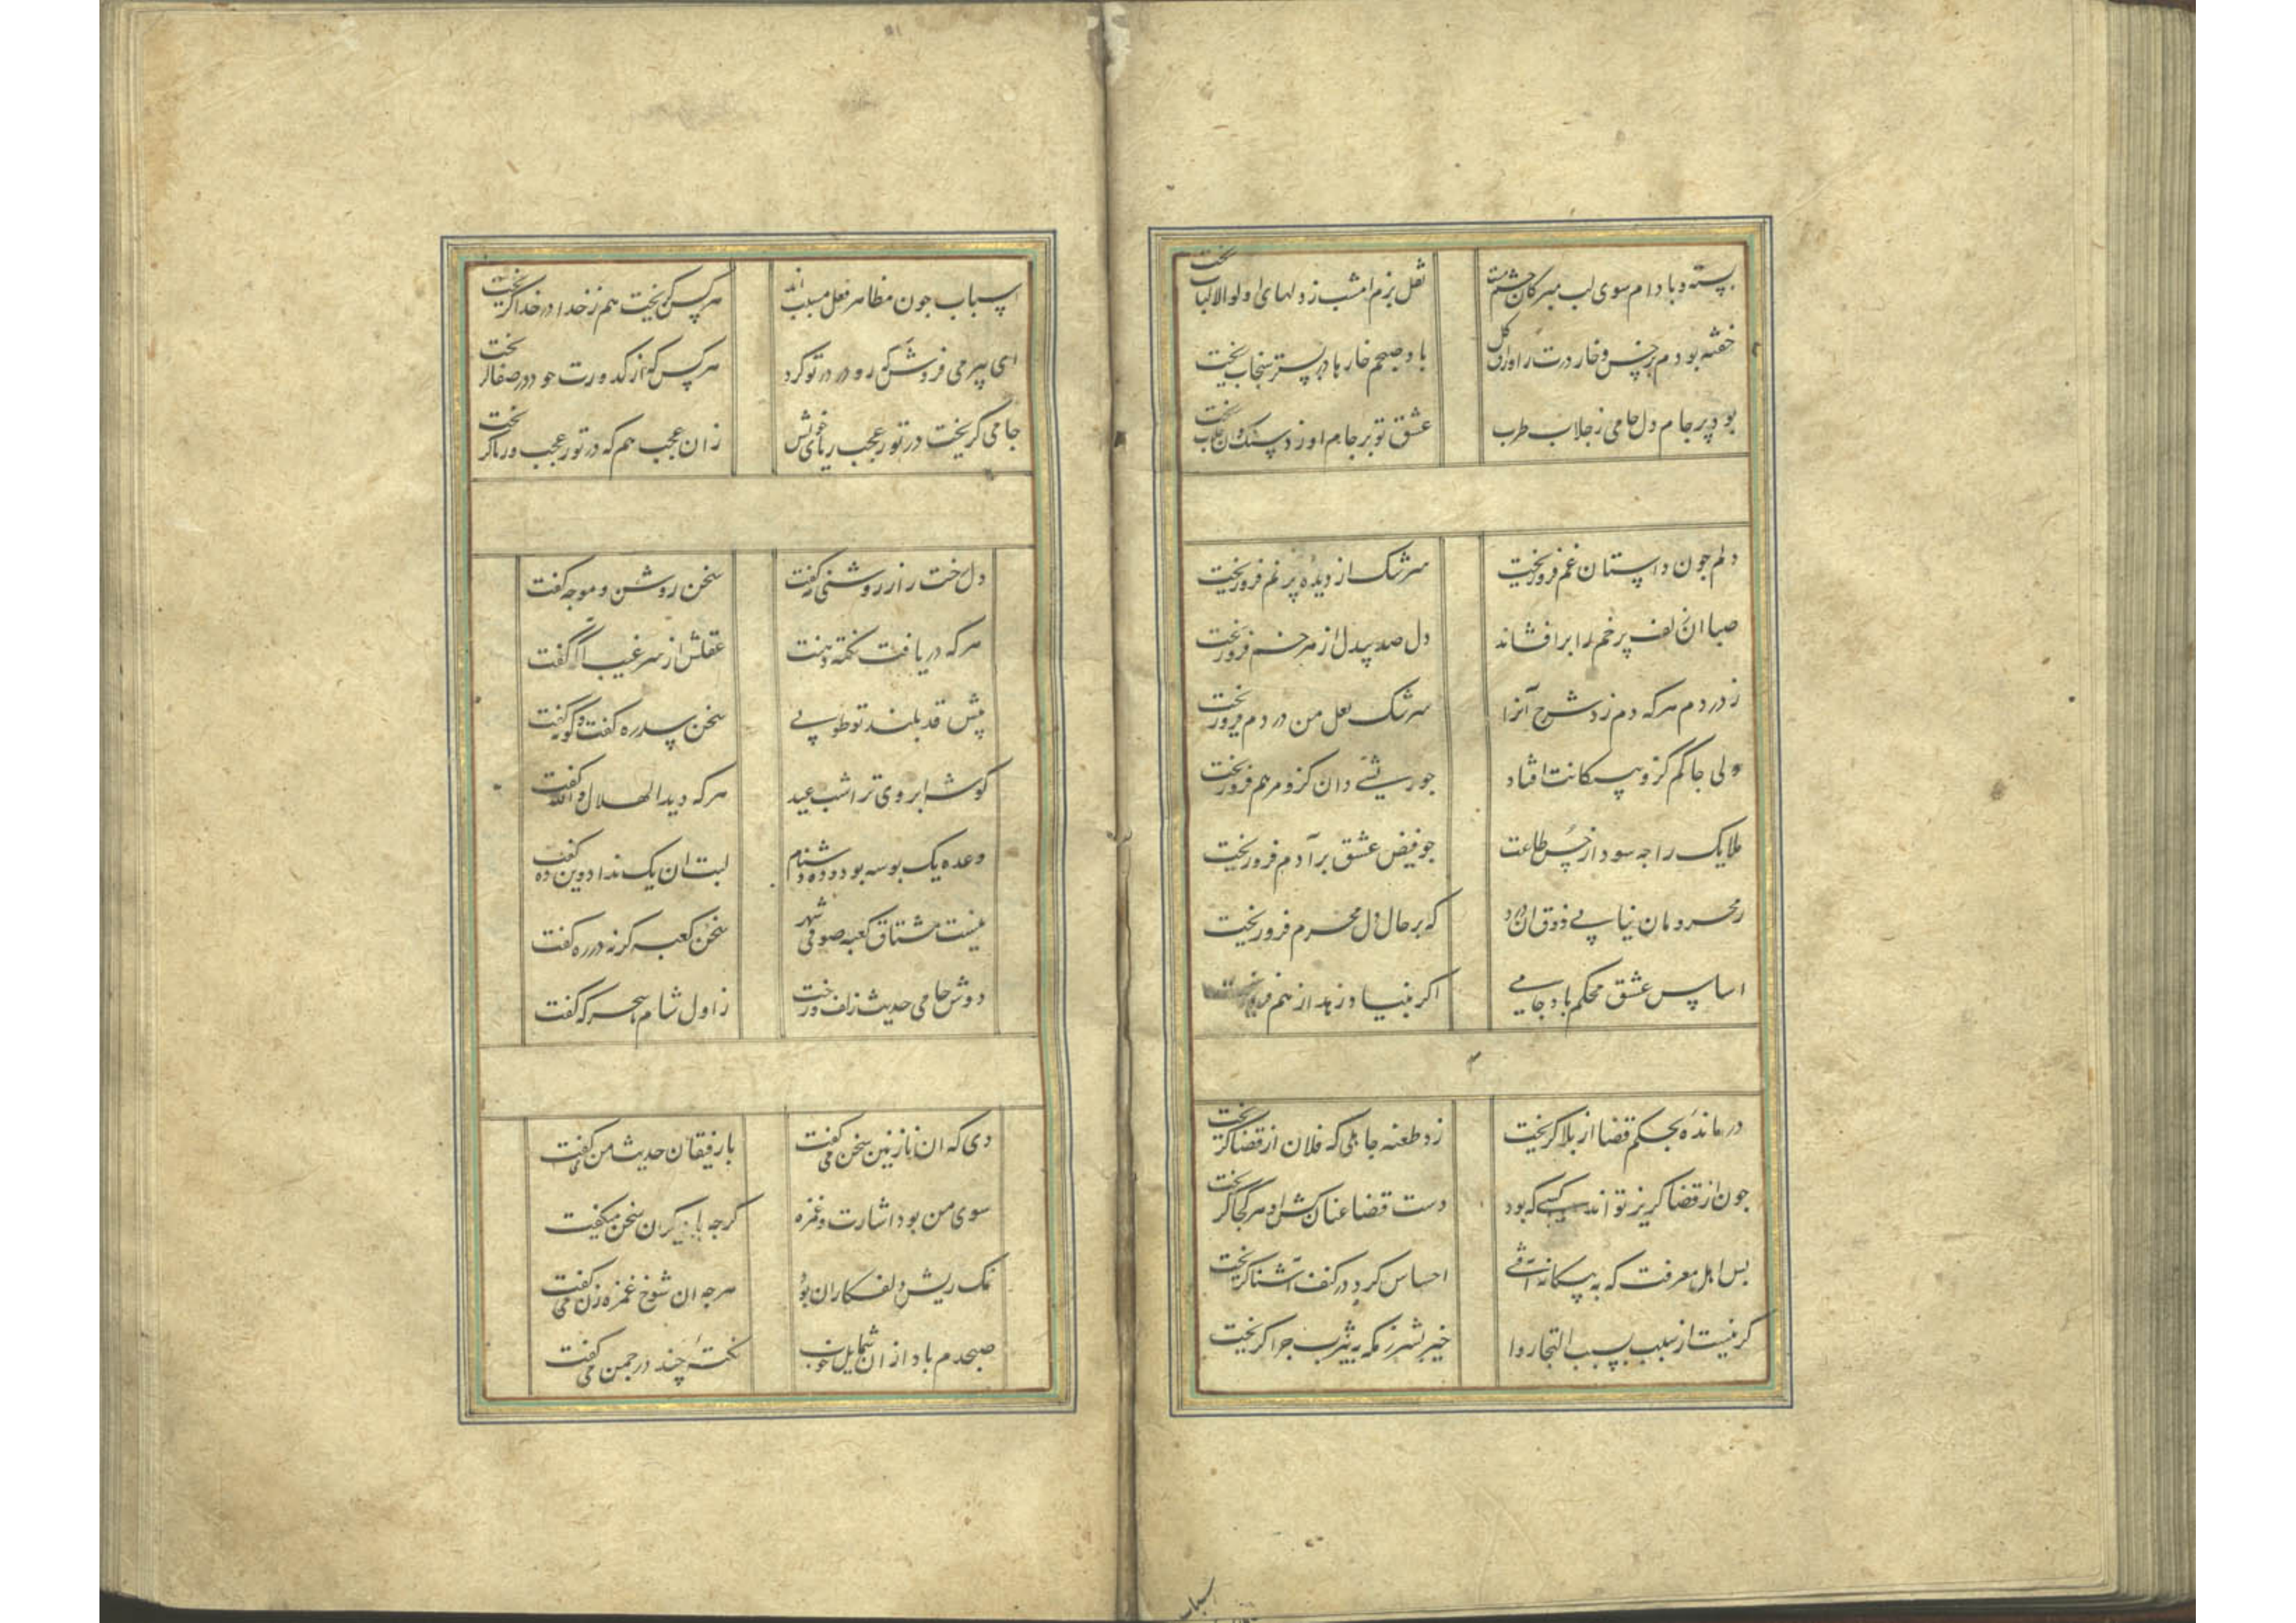 پسته و بادام سوی لب مبر کان چشم مست نقل بزم امشب ز دلهای اولوالالباب ریخت
خفته بودم بر خس و خار درت اوراق گل باد صبحم خارها در بستر سنجاب ریخت
بود پر جام دل جامی ز جلاب طرب عشق تو بر جام او زد سنگ وان جلاب ریخت
دلم جون داستان غم فرو ریخت سرشک از دیده پر نم فرو ریخت
صبا ان زلف پر خم را برافشاند دل صد بیدل از هر خم فرو ریخت
ز دردم هر که دم زد شرح آنرا سرشک لعل من در دم فرو ریخت
ولی جاکم کزو پیکانت افتاد جو ریشی دان کزو مرهم فرو ریخت
ملایک را جه سود از حسن طاعت جو فیض عشق بر آدم فرو ریخت
ز محرومان نیابی ذوق ان درد که بر حال دل محرم فرو ریخت
اساس عشق محکم باد جامی اگر بنیاد زهد از هم فرو ریخت
درمانده بحکم قضا از بلا گریخت زد طعنه جاهلی که فلان از قضا گریخت
جون از قضا گریز تواند کسی که بود دست قضا عنان کش او هر کجا گریخت
بس اهل معرفت که به بیگانه آفتی احساس کرد و در کنف آشنا گریخت
گر نیست از سبب بمسبب التجا روا خیر بشر ز مکه به یثرب جرا گریخت
اسباب
اسباب جون مظاهر فعل مسبب‌اند هر کس گریخت هم ز خدا در خدا گریخت
ای پیر می فروش که رو در در تو کرد هر کس که از کدورت خود در صفا گریخت
جامی گریخت در تو ز عجب و ریای خویش زان عجب هم که در تو ز عجب و ریا گریخت
دل رخت را ز روشنی مه گفت سخن روشن و موجه گفت
هر که دریافت نکته دهنت عقلش از سر غیب آگه گفت
پیش قد بلند تو طوبی سخن سدره گفت و کوته گفت
گوشه ابروی ترا شب عید هر که دید الهلال والله گفت
وعده یک بوسه بود و ده دشنام لبت ان یک نداد وین ده گفت
نیست مشتاق کعبه صوفی شهر سخن کعبه گر نه در ره گفت
دوش جامی حدیث زلف و رخت ز اول شام تا سحرگه گفت
دی که ان نازنین سخن می گفت با رفیقان حدیث من می گفت
سوی من بود اشارت و غمزه گرجه با دیگران سخن میگفت
نمک ریش دلفکاران بود هرجه ان شوخ غمزه زن می گفت
صبحدم باد از ان شمایل خوب نکته جند در جمن می گفت